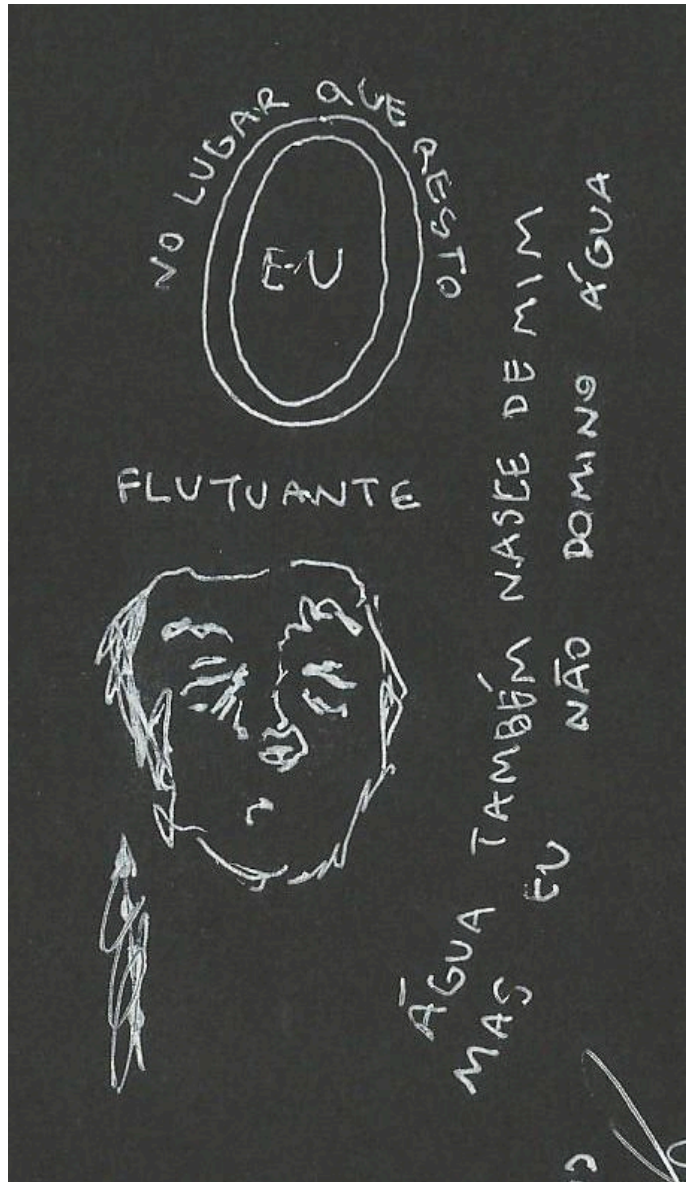 NO LUGAR QUE RESTO
EU
FLUTUANTE
ÁGUA TAMBÉM NASCE DE MIM
MAS EU NÃO DOMINO ÁGUA